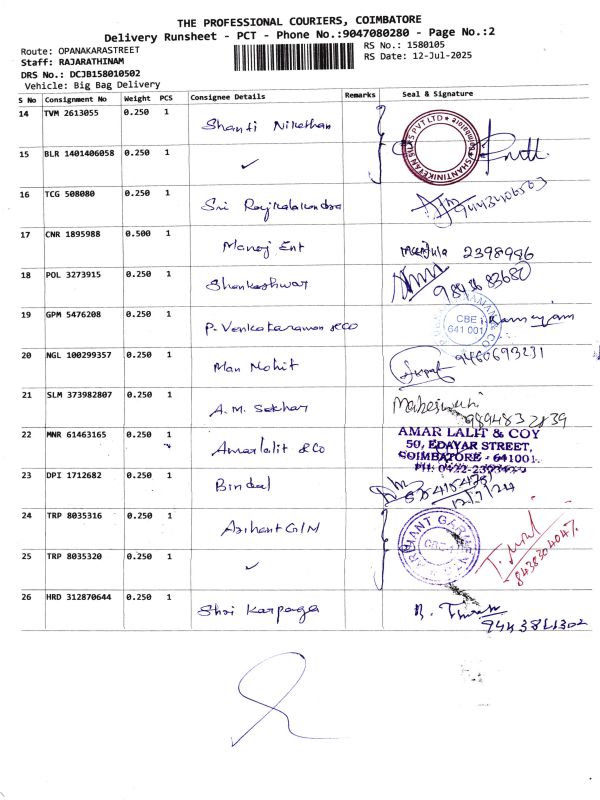 THE PROFESSIONAL COURIERS, COIMBATORE
Delivery Runsheet - PCT - Phone No.:9047080280 - Page No.:2
Route: OPANAKARASTREET
RS No.: 1580105
Staff: RAJARATHINAM
RS Date: 12-Jul-2025
DRS No.: DCJB158010502
Vehicle: Big Bag Delivery
S No Consignment No Weight PCS Consignee Details Remarks Seal & Signature
14 TVM 2613055 0.250 1 Shanti Nikethan
15 BLR 1401406058 0.250 1 ✓
SHANTINIKETAN SILKS PVT LTD
16 TCG 508080 0.250 1 Sri
17 CNR 1895988 0.500 1 Manoj Ent Manjula 2398996
18 POL 3273915 0.250 1 Shankeshwar
19 GPM 5476208 0.250 1 P. Venkataraman & CO
CBE
641 001
20 NGL 100299357 0.250 1 Man Mohit 9460693231
21 SLM 373982807 0.250 1 A.M. Sekhar Maheswari
9894832839
22 MNR 61463165 0.250 1 Amarlalit & Co
AMAR LALIT & COY
50, EDAYAR STREET,
COIMBATORE - 641001.
23 DPI 1712682 0.250 1 Bindal
24 TRP 8035316 0.250 1 Arihant G/M
25 TRP 8035320 0.250 1 ✓
ARIHANT GARMENT
8438304047
26 HRD 312870644 0.250 1 Shri Karpaga